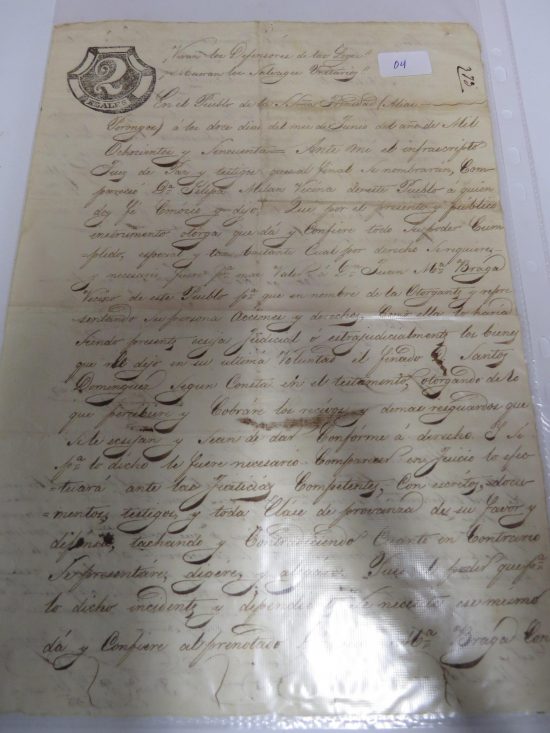 2
REALES
04
272
¡Vivan los Defensores de las Leyes!
¡Mueran los Salvages Unitarios!
En el Pueblo de la Sma Trinidad (Alias
Porongos) á los doce dias del mes de Junio del año de Mil
Ochocientos y Sincuenta Ante mi el infrascripto
Juez de Paz y testigos que al final se nombrarán, Com
pareció Da. Felipa Milan Vecina de este Pueblo a quien
doy fé Conosco y dijo, Que por el presente y público
instrumento otorga que dá y Confiere todo su poder Cum
plido, especial y tan bastante Cual por derecho se requiere,
y necesario fuere pa. mas Valer á Dn. Juan Ma. Braga
Vecino de este Pueblo pa. que en nombre de la Otorgante y repre
sentando su persona Acciones y derechos, como ella lo haria
siendo presente, exija Judicial ó estrajudicialmente los bienes
que dejó en su ultima Voluntad el finado Santos
Dominguez, Segun Consta en el testamento, otorgando de lo
que perciban y Cobrán los recivos y demas resguardos que
se le exijan y sean de dar Conforme á derecho. Y si
pa. lo dicho le fuere necesario Comparecer en Juicio lo efec
=tuará ante las Justicias Competentes, Con escritos, docu
=mentos, testigos, y toda Clase de provanza de su favor y
defensa, tachando y Contradiciendo Cuanto en Contrario
se representare, digere, y alegare Pues el poder que pa.
lo dicho incidente y dependiente se necesita ese mismo
dá y Confiere al prenotado Ma. Braga Con